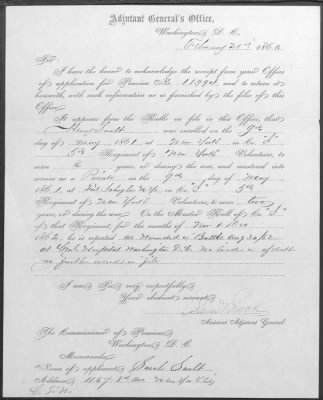 Adjutant General's Office,
Washington, D. C.
February 21st 1863.
Sir:
I have the honor to acknowledge the receipt from your Office
of application for Pension No. 11994, and to return it
herewith, with such information as is furnished by the files of this
Office.
It appears from the Rolls on file in this Office, that
Henry Sault was enrolled on the 9th
day of May 1861, at New York in Co. "I"
5th Regiment of New York Volunteers, to
serve 2 years, or during the war, and mustered into
service as a Private on the 9th day of May
1861, at Fort Schuyler N.Y. in Co. "I" 5th
Regiment of New York Volunteers, to serve two
years, or during the war. On the Muster Roll of Co. "I"
of that Regiment, for the months of Nov & Dec
1862, he is reported as Wounded in Battle Aug 30/62
at Hospital Washington D.C. No evidence of death
no further records on file.
I am Sir, very respectfully,
Your obedient servant,
Assistant Adjutant General.
The Commissioner of Pensions,
Washington, D. C.
Memoranda:
Name of applicant, Sarah Sault
Address, 1167 2nd Ave New York City